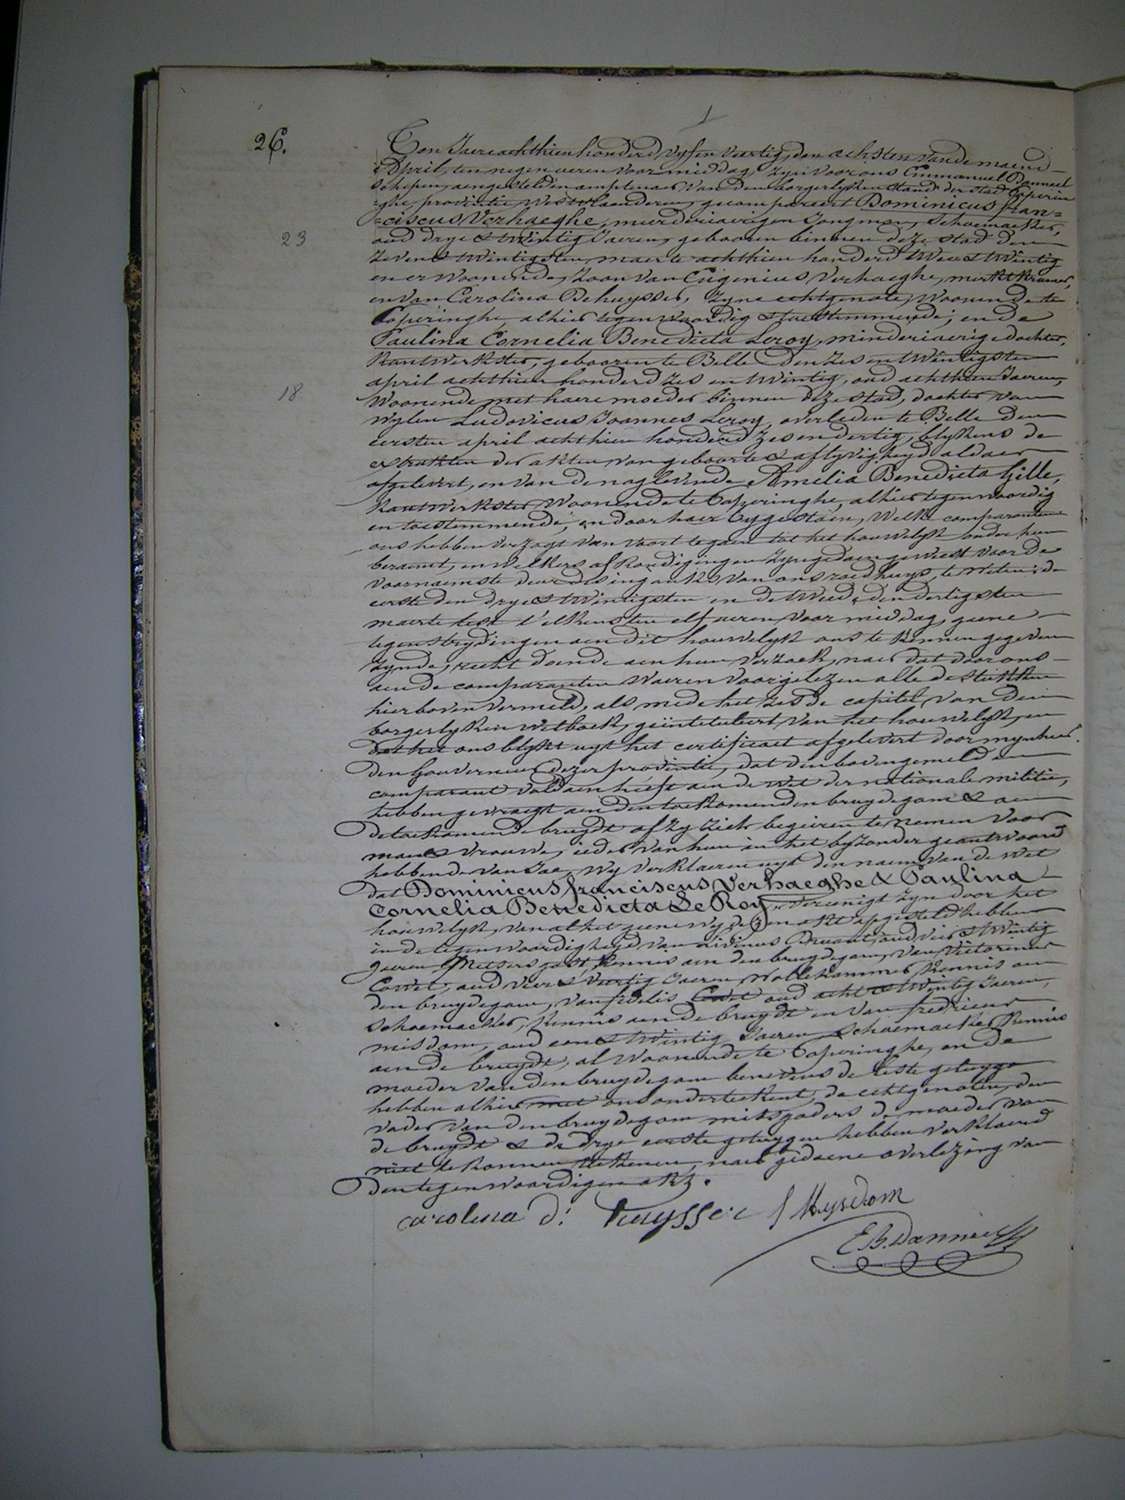 26.
Ten Jaere achthien honderd vyf en veertig, den achsten van de maend
april, ten negen ueren voor middag, zyn voor ons Emmanuel Danneel
schepen, aengestelden amptenaer van den borgerlyken stand der stad Poperin
ghe, provintie Westvlaenderen, gecompareert Dominicus fran=
=ciscus Verhaeghe, minderiaerigen Jongman, schoemaeker,
23
oud drye & twintig Jaeren, gebooren binnen deze stad den
zeven & twintigsten maerte achthien honderd twee & twintig
en er Woonende, Zoon van Eugenius Verhaeghe, merktkramer,
en van Carolina Dehuysser, zyne echtgenote, Woonende te
Poperinghe, alhier tegenwoordig & toestemmende; en de
Paulina Cornelia Benedicta Leroy, minderiaerige dochter,
kantwerkster, gebooren te Belle den zes en twintigsten
april achthien honderd zes en twintig, oud achthien Jaeren,
18
Woonende met haere moeder binnen deze stad, dochter van
wylen Ludovicus Joannes Leroy, overleden te Belle den
eersten april achthien honderd zes en dertig, blykens de
extrakten der akten van geboorte & aflyvigheyd aldaer
afgelevert, en van de naglevende Amelia Benedicta Gille,
kantwerkster, Woonende te Poperinghe, alhier tegenwoordig
en toestemmende, en door haer bygestaen, Welke comparanten
ons hebben verzogt van voort te gaen tot het houwelyk onder hun
beraemt, en welkers afkondigingen zyn gedaen geweest voor de
voornaemste deur des ingankx van ons raedhuys, te weten; de
eerste den drye & twintigsten en de tweede den dertigsten
maerte lest t'elkens ten elf ueren voor middag, geene
tegenstrydingen aen dit houwelyk ons te kennen gegeven
zynde, recht doende aen hun verzoek, naer dat door ons
aen de comparanten Waeren voorgelezen alle de stukken
hier boven vermeld, als mede het zesde capitel van den
borgerlyken wetboek, geïntituleert, van het houwelyk, en
dat het ons blykt uyt het certificaet afgelevert door mynheer
den Gouverneur dezer provintie, dat den bovengemelden
comparant voldaen heeft aen de wet der nationale militie,
hebben gevraegt aen den toekomenden bruydegom & aen
de toekomende bruydt of zy zich begeiren te nemen voor
man & vrouwe, ieder van hun in het byzonder geantwoord
hebbende van Jae, Wy verklaeren uyt den naem van de Wet
dat Dominicus franciscus Verhaeghe & Paulina
Cornelia Benedicta Le Roy, vereenigt zyn door het
houwelyk, van al het geene wy dezen akt opgesteld hebben
in de tegenwoordigheyd van Livinus Druant, oud vier & twintig
Jaeren, Metsers gast, kennis aen den bruydegom, van Victorinus
Cowet, oud vier & veertig Jaeren, Wollekammer, kennis aen
den bruydegom, van fidelis Cowet oud acht & twintig Jaeren,
schoemaeker, kennis aen de bruydt en van fredricus
misdom, oud een & twintig Jaeren, schoemaeker, kennis
aen de bruydt, al Woonende te Poperinghe, en de
moeder van den bruydegom benevens de leste getuyge
hebben alhier met ons onderteekent, de echtgenoten, den
vader van den bruydegom mitsgaders de moeder van
de bruydt & de drye eerste getuygen hebben verklaerd
niet te konnen teekenen, naer gedaene overlezing van
den tegenwoordigen akt.
carolina d: huysser f Mysdom
E B. Danneel